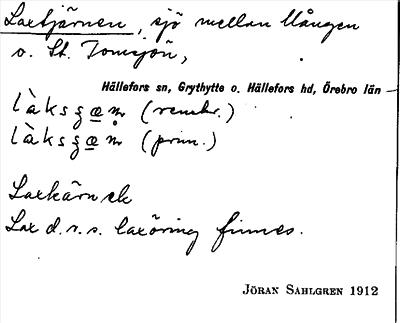 Laxtjärnen, sjö mellan Uvången
o. St. Tomsjön,
Hällefors sn, Grythytte o. Hällefors hd, Örebro län
(renskr.)
(prim.)
Laxkärn ek
Lax d.v.s. laxöring finnes.
JÖRAN SAHLGREN 1912